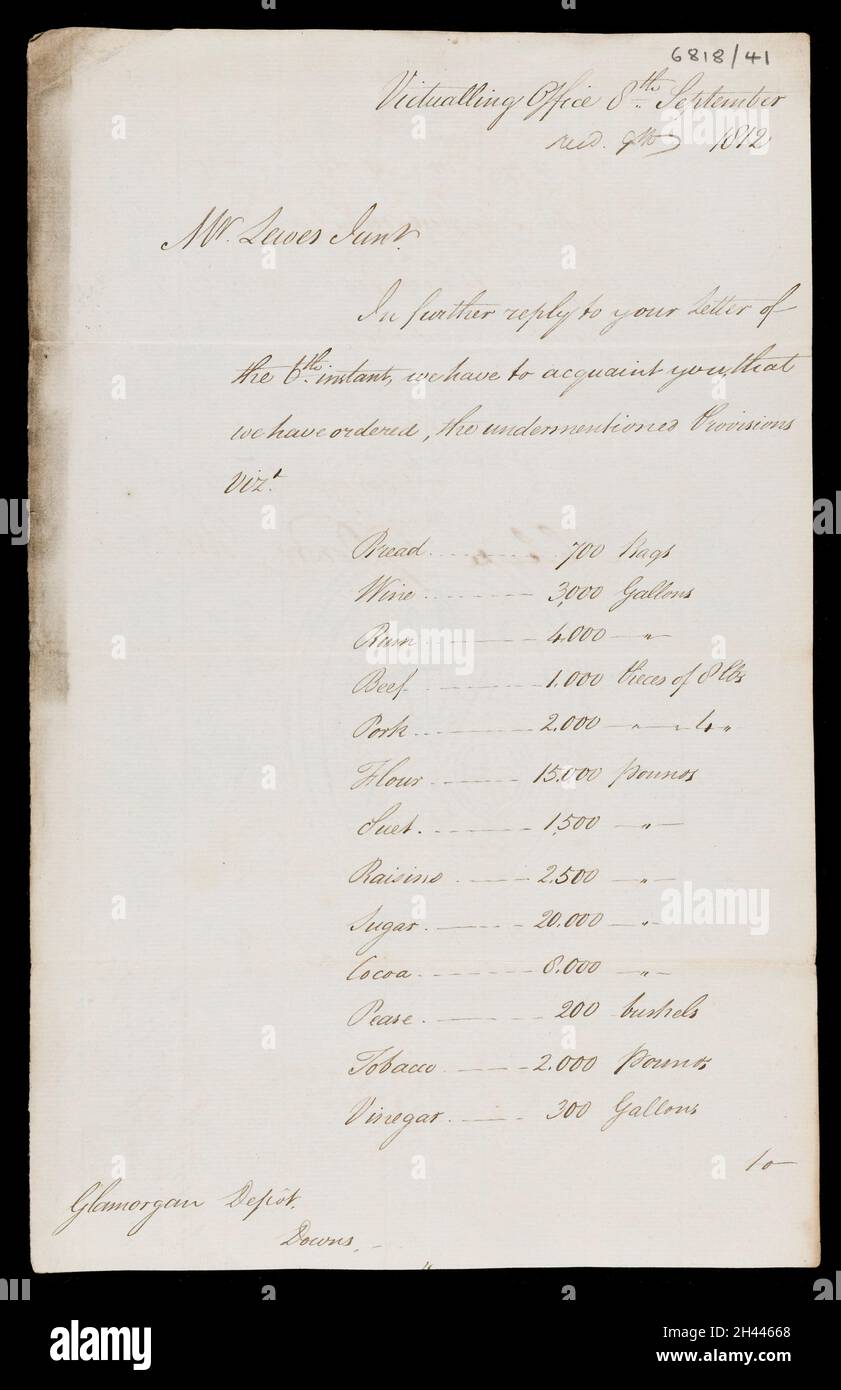 6818/41
Victualling Office 8th September
recd. 9th 1812
Mr. Lewes Junr.
In further reply to your Letter of
the 6th instant, we have to acquaint you, that
we have ordered, the undermentioned Provisions
Vizt.
Bread 700 Bags
Wine 3,000 Gallons
Rum 4.000 "
Beef 1.000 Pieces of 8 lbs
Pork 2.000 " " 4 "
Flour 15.000 pounds
Suet. 1,500 "
Raisins 2.500 "
Sugar 20.000 "
Cocoa 8.000 "
Pease 200 bushels
Tobacco 2.000 pounds
Vinegar 300 Gallons
to
Glamorgan Depôt.
Downs.
alamy
alamy
alamy
alamy
Image ID: 2H44668
www.alamy.com